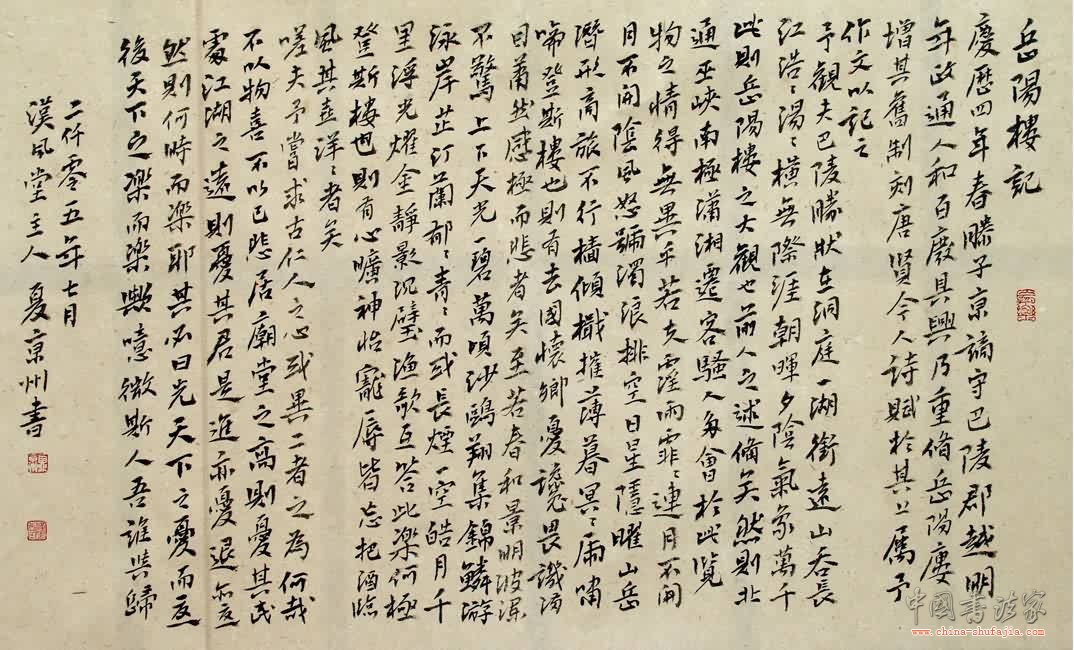 岳陽樓記
慶歷四年春滕子京謫守巴陵郡越明
年政通人和百廢具興乃重脩岳陽廔
增其舊制刻唐賢今人詩賦於其上屬予
作文以記之
予觀夫巴陵勝狀在洞庭一湖銜遠山吞長
江浩〻湯〻橫無際涯朝暉夕陰氣象萬千
此則岳陽樓之大觀也前人之述備矣然則北
通巫峽南極瀟湘遷客騷人多會於此覽
物之情得無異乎若夫霪雨霏〻連月不開
月不開陰風怒號濁浪排空日星隱曜山岳
潛形商旅不行檣傾檝摧薄暮冥〻虎嘯
啼登斯樓也則有去國懷鄉憂讒畏譏滿
目蕭然感極而悲者矣至若春和景明波瀾
不驚上下天光一碧萬頃沙鷗翔集錦鱗游
泳岸芷汀蘭郁〻青〻而或長煙一空皓月千
里浮光耀金靜影沉璧漁歌互答此樂何極
登斯樓也則有心曠神怡寵辱皆忘把酒臨
風其喜洋〻者矣
嗟夫予嘗求古仁人之心或異二者之為何哉
不以物喜不以己悲居廟堂之高則憂其民
處江湖之遠則憂其君是進亦憂退亦憂
然則何時而樂耶其必曰先天下之憂而憂
後天下之樂而樂歟噫微斯人吾誰與歸
二仟零五年七月
漢風堂主人夏京州書
中国书法家
www.china-shufajia.com